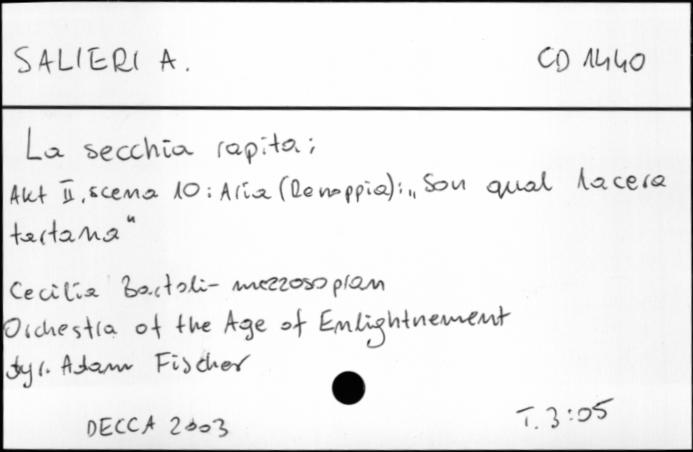 SALIERI A. CD 1440
La secchia rapita:
Akt II, scena 10: Aria (Renoppia): „Son qual lacera
tartana"
Cecilia Bartoli - mezzosopran
Orchestra of the Age of Enlightnement
dyr. Adam Fischer
DECCA 2003 T. 3:05